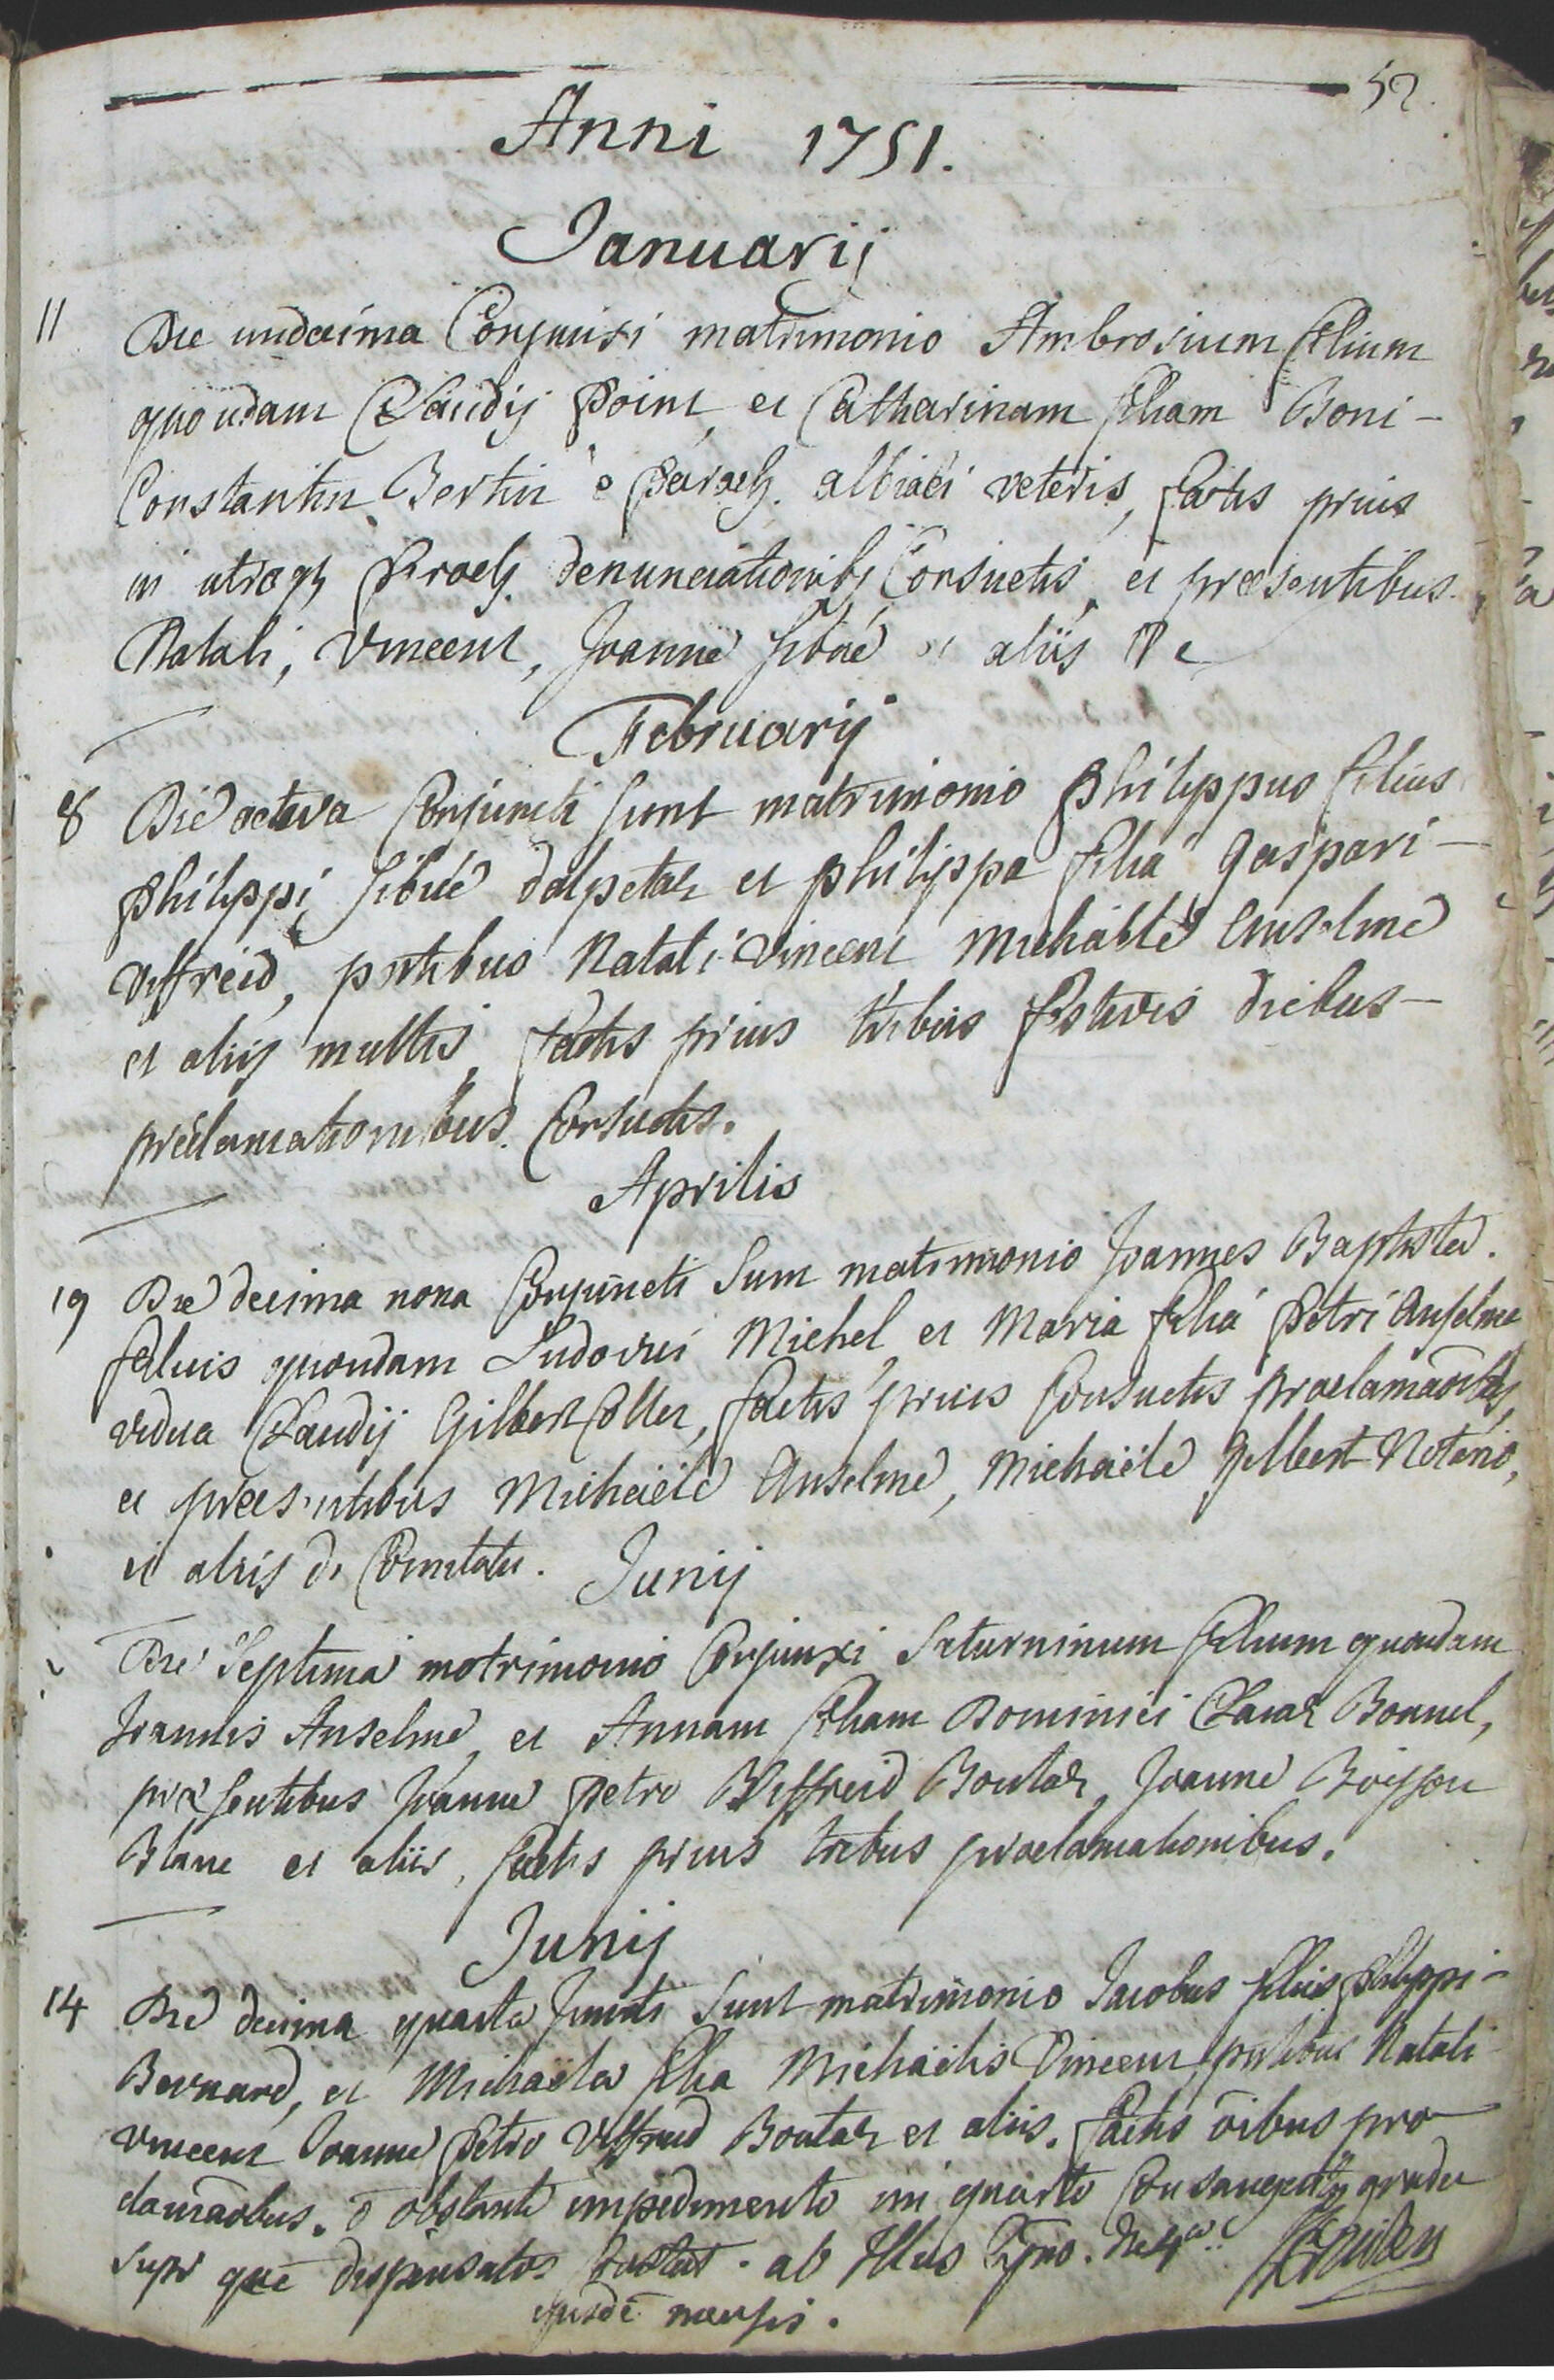 52.
Anni 1751.
Januarij
11 Die undecima Conjunxi matrimonio Ambrosium filium
quondam Claudij Point, et Catharinam filiam Boni-
Constantin Bertin è Paroch. albiaci veteris, factis prius
in utraq Paroch. denunciationibq Consuetis, et præsentibus
Natali, Vincent, Joanne Sibué et aliis
Februarij
8 Die octava Conjuncti sunt matrimonio Philippus filius
Philippi Sibué dalpetaz et philippa filia gaspari-
Viffreid, pntibus Natali Vincent Michaële Anselme
et alijs multis, factis prius tribus festivis diebus-
proclamationibus Consuetis.
Aprilis
19 Die decima nona Conjuncti sunt matrimonio Joannes Baptista
filius quondam Ludovici Michel, et Maria filia Petri Anselme
vidua Claudij Gilbert Collet, factis prius Consuetis proclamaõibq,
et præsentibus Michaële Anselme, Michaële Gilbert Notario,
et aliis de Comitatu.
Junij
7 Die Septima matrimonio Conjunxi Saturninum filium quondam
Joannis Anselme, et Annam filiam Dominici Claraz Bonnel,
præsentibus Joanne Petro Viffreid Boutaz, Joanne Boisson
Blanc et aliis, factis prius tribus proclamationibus.
Junij
14 Die decima quarta Juncti sunt matrimonio Jacobus filius Philippi-
Bernard, et Michaëla filia Michaëlis Vincent, pntibus Natali
Vincent Joanne Petro Viffreid Boutaz et aliis. factis õibus pro
clamaõbus. õ obstante impedimento in quarto Consanguitis gradu
super quē dispensatos Constat. ab Illus
ejusdē mensis.